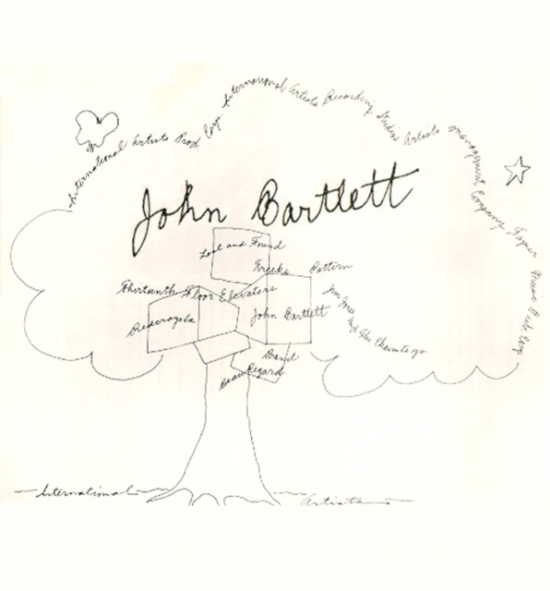 International Artists Prod Corp International Artists Recording Studios Artists Management Company Tapier Music Pub Corp
John Bartlett
Lost and Found
Freeks Pattern
Thirteenth Floor Elevators
Rediscrayola
John Bartlett
and the Chaumtogs
Band
Beau Regard
International
Artists